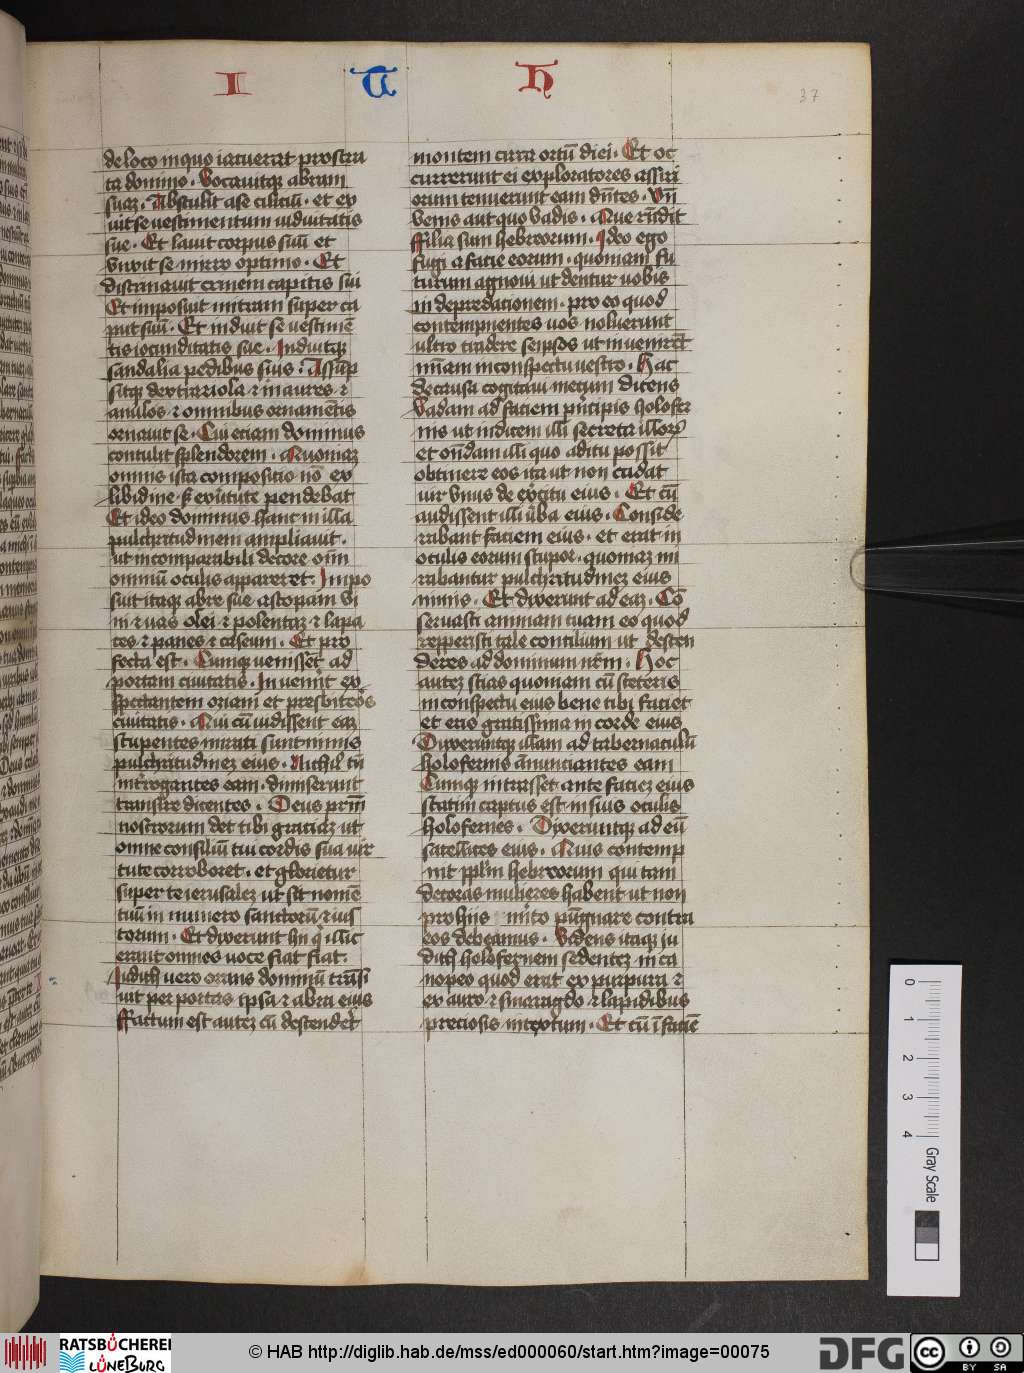 I U H
37
de loco in quo iacuerat prostra
ta domino. Vocauitqꝫ abram
suaꝫ. Abstulit a se ciliciū. et ex
uit se uestimentum uiduitatis
sue. Et lauit corpus suū et
vnxit se mirro optimo. Et
discrimauit crinem capitis sui
Et imposuit mitram super ca
put suū. Et induit se uestimē
tis iocunditatis sue. Induitqꝫ
sandalia pedibus suis. Assūp
sitqꝫ dextrariola ⁊ inaures ⁊
anulos ⁊ omnibus ornamētis
ornauit se. Cui etiam dominus
contulit splendorem. Quoniaꝫ
omnis ista compositio nō ex
libidine sꝫ ex uirtute pendebat
Et ideo dominus hanc in illa
pulchritudinem ampliauit.
ut incomparabili decore oīm
omniū oculis appareret. Impo
suit itaqꝫ abre sue ascopam vi
ni ⁊ uas olei ⁊ polentaꝫ ⁊ lapa
tes ⁊ panes ⁊ caseum. Et pro
fecta est. Cumqꝫ uenisset ad
portam ciuitatis. Inuenit ex
spectantem oziam et presbiteros
ciuitatis. Qui cū uidissent eaꝫ
stupentes mirati sunt nimis
pulchritudineꝫ eius. Nichil tn̄
int'rogantes eam. dimiserunt
transire dicentes. Deus prm̄
nostrorum det tibi graciaꝫ ut
omne consiliū tui cordis sua uir
tute corroboret. et glorietur
super te ierusaleꝫ ut sit nomē
tuū in numero sanctorū ⁊ ius
torum. Et dixerunt hii qͥ illic
erant omnes uoce fiat fiat.
Iudith uero orans dominū trāsi
uit per portas ipsa ⁊ abra eius
Factum est auteꝫ cū descendet'
montem circa ortū diei. Et oc
currerunt ei exploratores assiri
orum tenuerunt eam dn̄tes. Vn̄
venis aut quo vadis. Que rn̄dit
Filia sum hebreorum. Ideo ego
fugi a facie eorum. quoniam fu
turum agnoui ut dentur uobis
in depredationem. pro eo quod
contempnentes uos noluerunt
ultro tradere seipsos ut inuenirēt
mīam in conspectu uestro. Hac
de causa cogitaui mecum dicens
Vadam ad faciem principis holofer
nis ut indicem illi secreta illorꝫ
et on̄dam illi quo aditu possit
obtinere eos ita ut non cadat
uir vnus de exercitu eius. Et cū
audissent illi u'ba eius. Conside
rabant faciem eius. et erat in
oculis eorum stupor. quoniaꝫ mi
rabantur pulchritudineꝫ eius
nimis. Et dixerunt ad eaꝫ. Cō
seruasti animam tuam eo quod
repperisti tale consilium ut descen
deres ad dominum nr̄m. Hoc
auteꝫ scias quoniam cū steteris
in conspectu eius bene tibi faciet
et eris gratissima in corde eius
Duxeruntqꝫ illam ad tabernaculū
holofernis ānunciantes eam
Cumqꝫ intrasset ante facieꝫ eius
statim captus est in suis oculis
holofernes. Dixeruntqꝫ ad eū
satellites eius. Quis contemp
nit ppl'm hebreorum qui tam
decoras mulieres habent ut non
pro hiis m'ito pugnare contra
eos debeamus. Videns itaqꝫ iu
dith holofernem sedenteꝫ in ca
nopeo quod erat ex purpura ⁊
ex auro ⁊ smaragdo ⁊ lapidibus
preciosis intextum. Et cū ī faciē
0
1
2
3
4
Gray Scale
RATSBÜCHEREI
LÜNEBURG
© HAB http://diglib.hab.de/mss/ed000060/start.htm?image=00075
DFG
cc BY SA